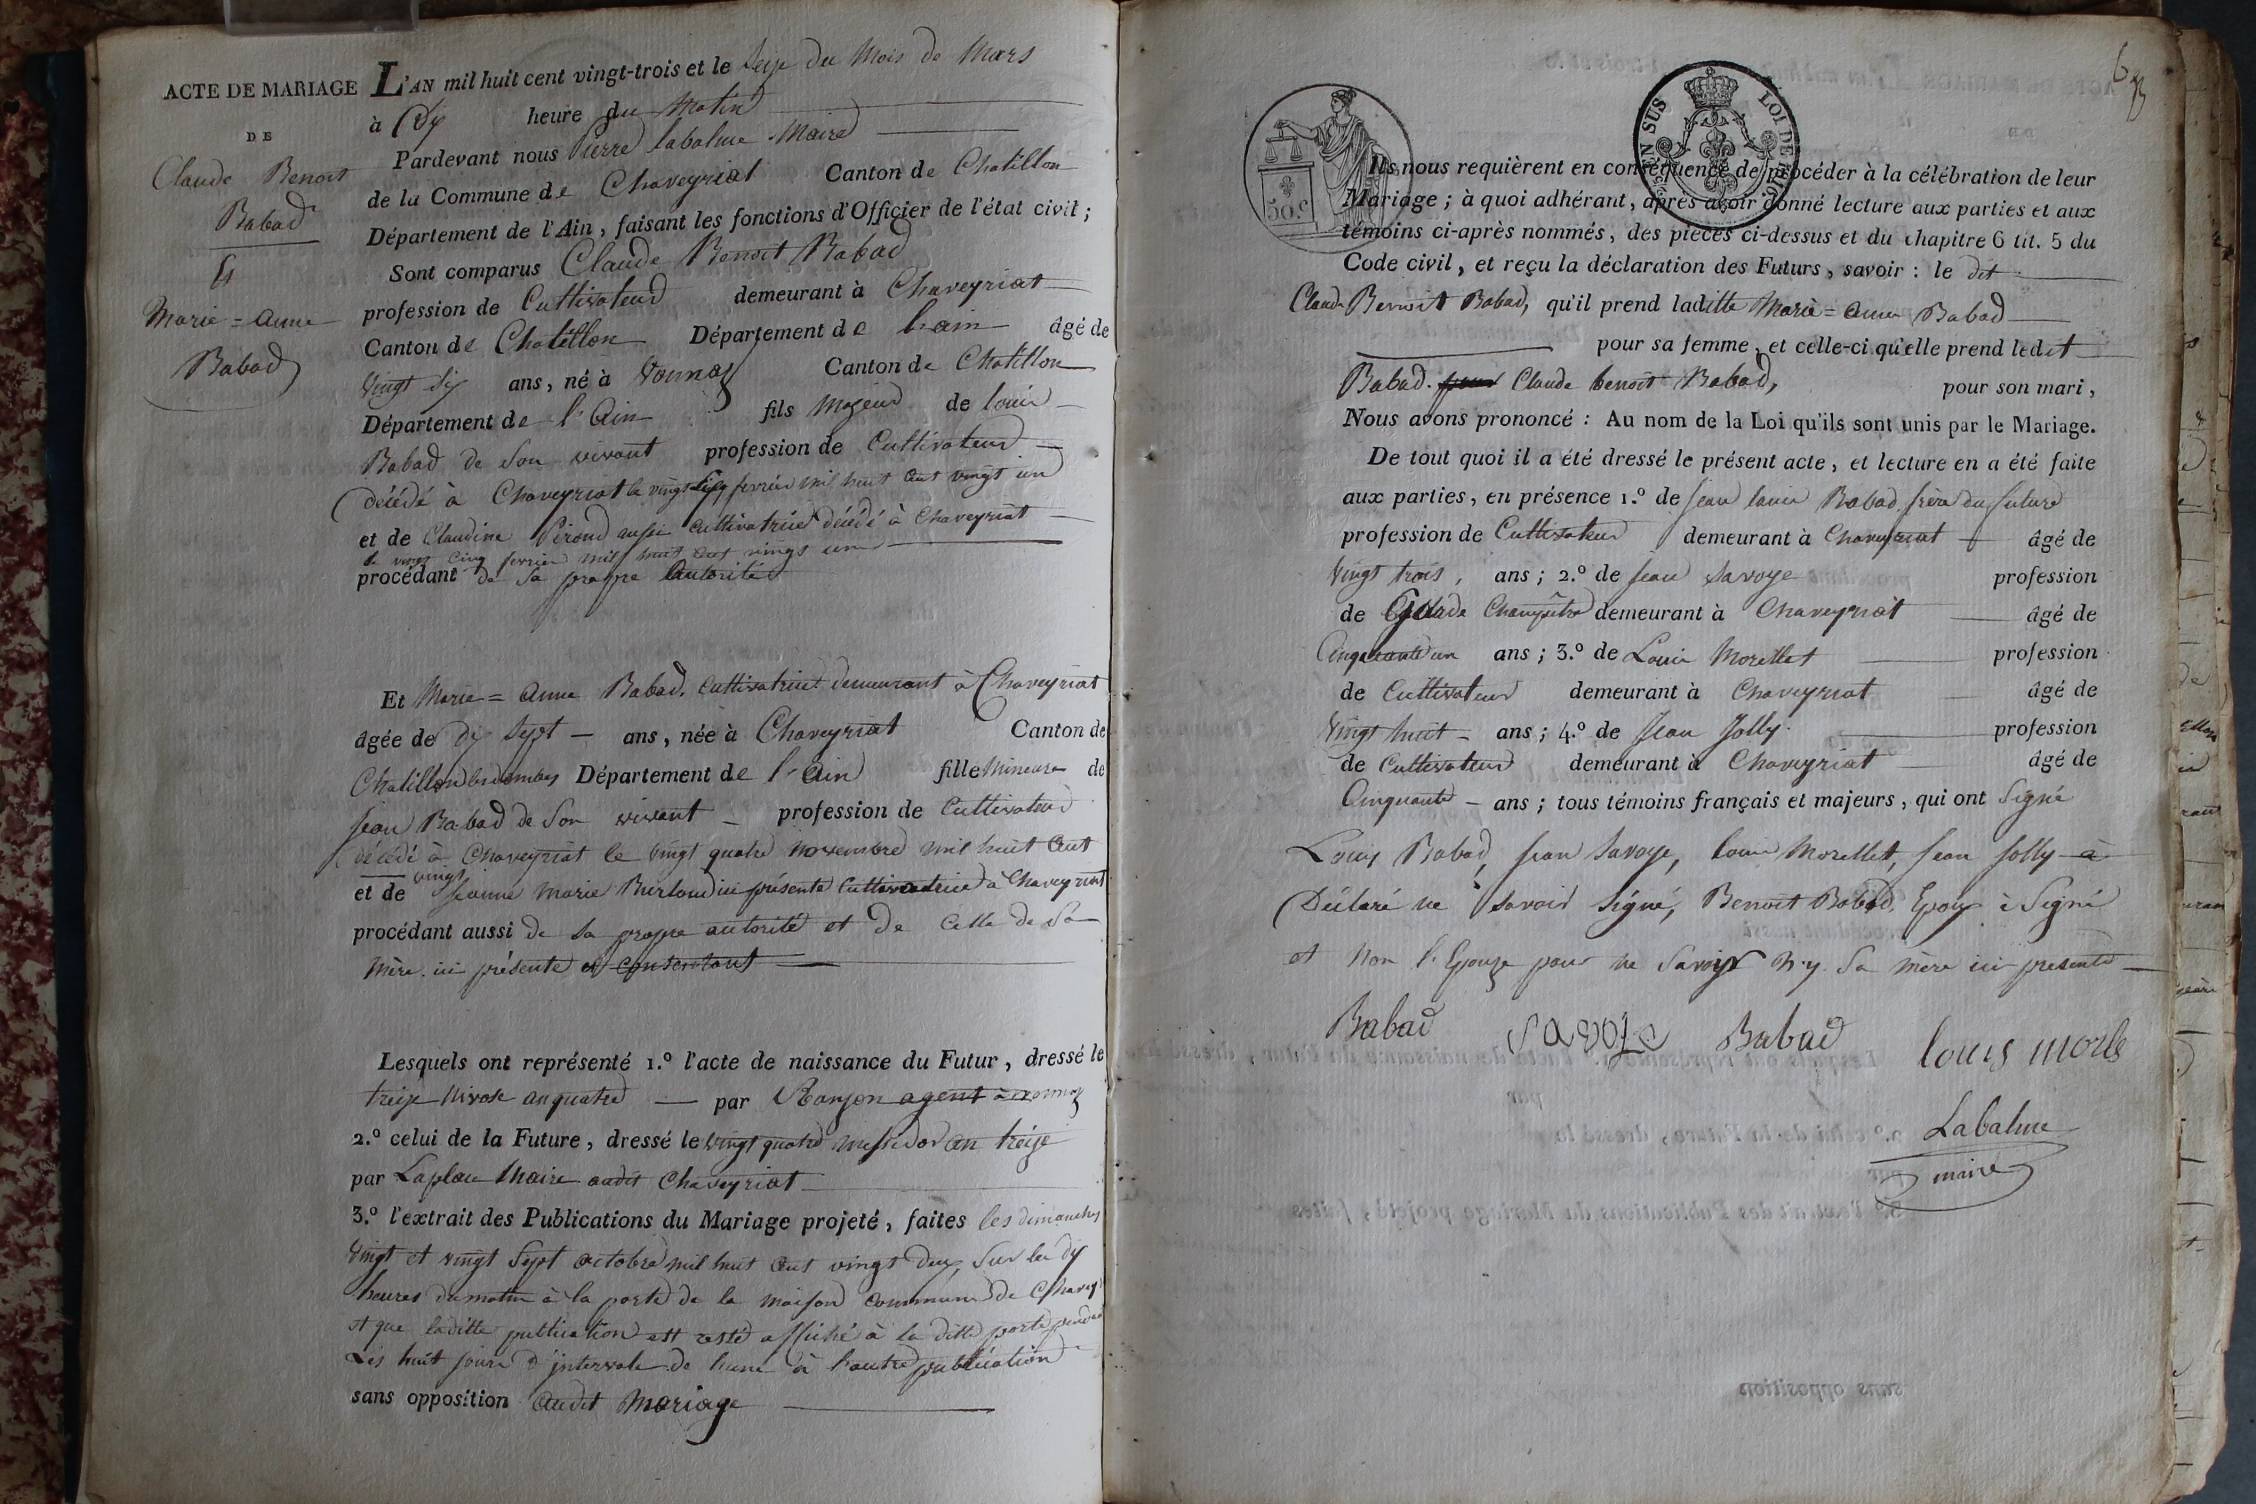 ACTE DE MARIAGE
DE
Claude Benoit
Babad
Et
Marie = anne
Babad
L'AN mil huit cent vingt-trois et le Seize du Mois de Mars
à Dix heure du Matin
Pardevant nous Pierre Labalme Maire
de la Commune de Chaveyriat Canton de Chatillon
Département de l'Ain, faisant les fonctions d'Officier de l'état civil;
Sont comparus Claude Benoit Babad
profession de Cultivateur demeurant à Chaveyriat
Canton de Chatillon Département de L'ain âgé de
Vingt six ans, né à Vonnas Canton de Chatillon
Département de l'Ain fils Majeur de louis
Babad de Son vivant profession de Cultivateur
décédé à Chaveyriat le vingt fevrier mil huit cent vingt un
et de Claudine aussi cultivatrice décédé à Chaveyriat
le vingt Cinq fevrier mil huit cent vingt un
procédant de Sa propre Autorité
Et Marie = Anne Babad. Cultivatrice demeurant à Chaveyriat
âgée de dix Sept ans, née à Chaveyriat Canton de
Chatillon les dombes Département de l'Ain fille Mineure de
Jean Babad de Son vivant profession de Cultivateur
décédé à Chaveyriat le vingt quatre novembre mil huit Cent
vingt
et de Jeanne Marie Burtoud ici présente Cultivatrice à Chaveyriat
procédant aussi de Sa propre autorité et de Celle de Sa
Mère ici présente et consentant
Lesquels ont représenté 1.º l'acte de naissance du Futur, dressé le
treize Nivose an quatre par Ranjon agent à vonnaz
2.º celui de la Future, dressé le vingt quatre messidor an treize
par Laplace Maire audit Chaveyriat
3.º l'extrait des Publications du Mariage projeté, faites les dimanches
Vingt et vingt Sept octobre mil huit Cent vingt deux, Sur les dix
heures du matin à la porte de la maison commune de Chavey
et que laditte publication est resté affiché à la ditte porte pendant
Les huit jours d'intervale de l'une à l'autre publication
sans opposition audit Mariage
6
SUS
LOI DE
50 c.
Ils nous requièrent en conséquence de procéder à la célébration de leur
Mariage; à quoi adhérant, après avoir donné lecture aux parties et aux
témoins ci-après nommés, des pièces ci-dessus et du chapitre 6 tit. 5 du
Code civil, et reçu la déclaration des Futurs, savoir: le dit
Claude Benoit Babad, qu'il prend laditte Marie = anne Babad
pour sa femme, et celle-ci qu'elle prend ledit
Babad. pour Claude benoit Babad, pour son mari,
Nous avons prononcé: Au nom de la Loi qu'ils sont unis par le Mariage.
De tout quoi il a été dressé le présent acte, et lecture en a été faite
aux parties, en présence 1.º de Jean louis Babad frère du future
profession de Cultivateur demeurant à Chaveyriat âgé de
Vingt trois, ans; 2.º de Jean Savoye profession
de Garde Champêtre demeurant à Chaveyriat âgé de
Cinquante un ans; 3.º de Louis Morellet profession
de Cultivateur demeurant à Chaveyriat âgé de
Vingt huit ans; 4.º de Jean Jolly. profession
de Cultivateur demeurant à Chaveyriat âgé de
Cinquante ans; tous témoins français et majeurs, qui ont Signé
Louis Babad, Jean Savoye, Louis Morellet, Jean Jolly à
Déclaré ne Savoir Signé, Benoit Babad, Epoux à Signé
et Non l'Epouze pour ne Savoir n.y. Sa mère ici presente
Babad Savoie Babad louis morle
Labalme
maire